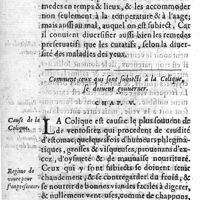 medes en temps & lieux, & les accommoder
non seulement à la temperature & à l'aage,
mais aussi au mal, auquel on est subiect. Car
il conuient diuersifier aussi bien les remedes
preseruatifs que les curatifs, selon la diuer-
sité des maladies des yeux.
Comment ceux qui sont subiects à la Colique,
se doiuent gouuerner.
CHAP. V.
Cause de la
Colique.
LA Colique est causée le plus souuent de
de ventositez qui procedent de crudité
d'estomac, quelquesfois d'humeurs phlegma-
tiques, grosses & visqueuses, prouenans d'ex-
cez, d'oysiueté & de mauuaise nourriture.
Regime de
viure pour
Ceux qui y sont subiects se doiuent tenir
chaudement, & se contregarder du froid, &
se nourrir de bonnes viandes faciles à digerer,
& nullement venteuses, comme de chappons,